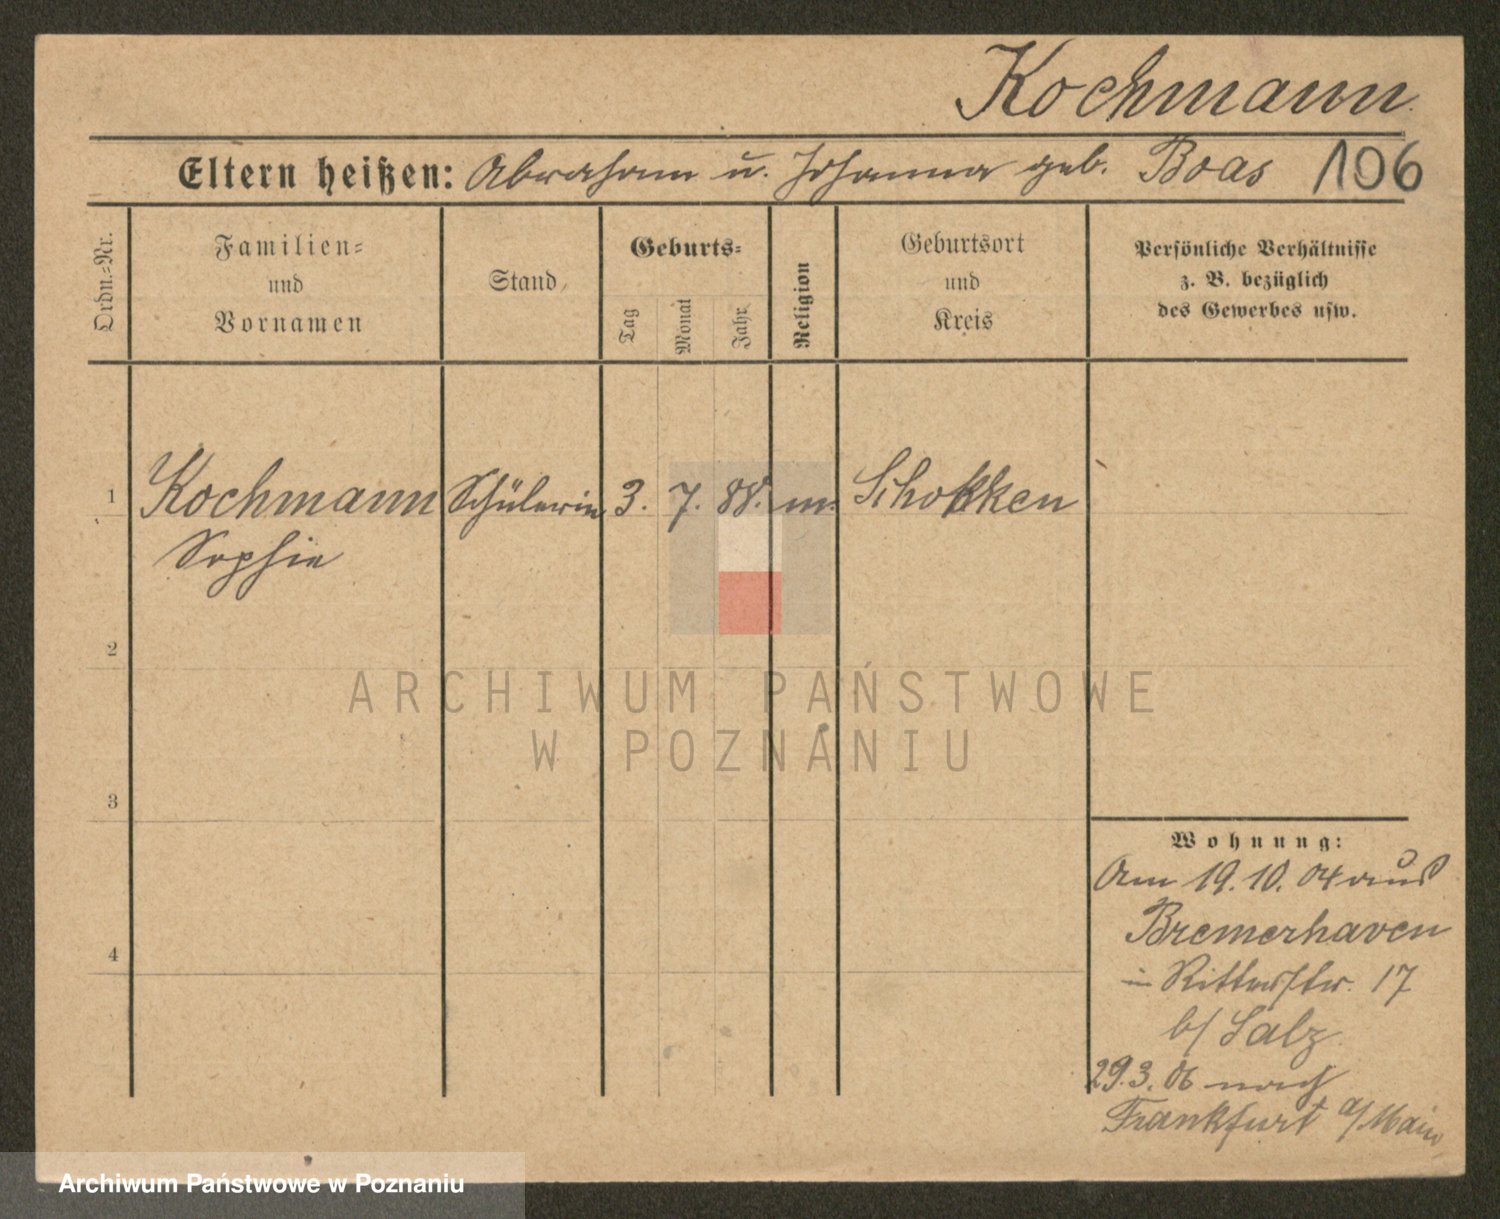 Kochmann.
Eltern heißen: Abraham u. Johanna geb. Boas 106
Ordn.-Nr.
Familien-
und
Vornamen
Stand
Geburts-
Tag
Monat
Jahr
Religion
Geburtsort
und
Kreis
Persönliche Verhältnisse
z. B. bezüglich
des Gewerbes usw.
1 Kochmann Schülerin 3. 7. 88. m. Schokken
Sophie
2
3
4
ARCHIWUM PAŃSTWOWE
W POZNANIU
Wohnung:
Am 19.10.04 aus
Bremerhaven
in Ritterstr. 17
b/ Salz
29.3.06 nach
Frankfurt a/Main
Archiwum Państwowe w Poznaniu